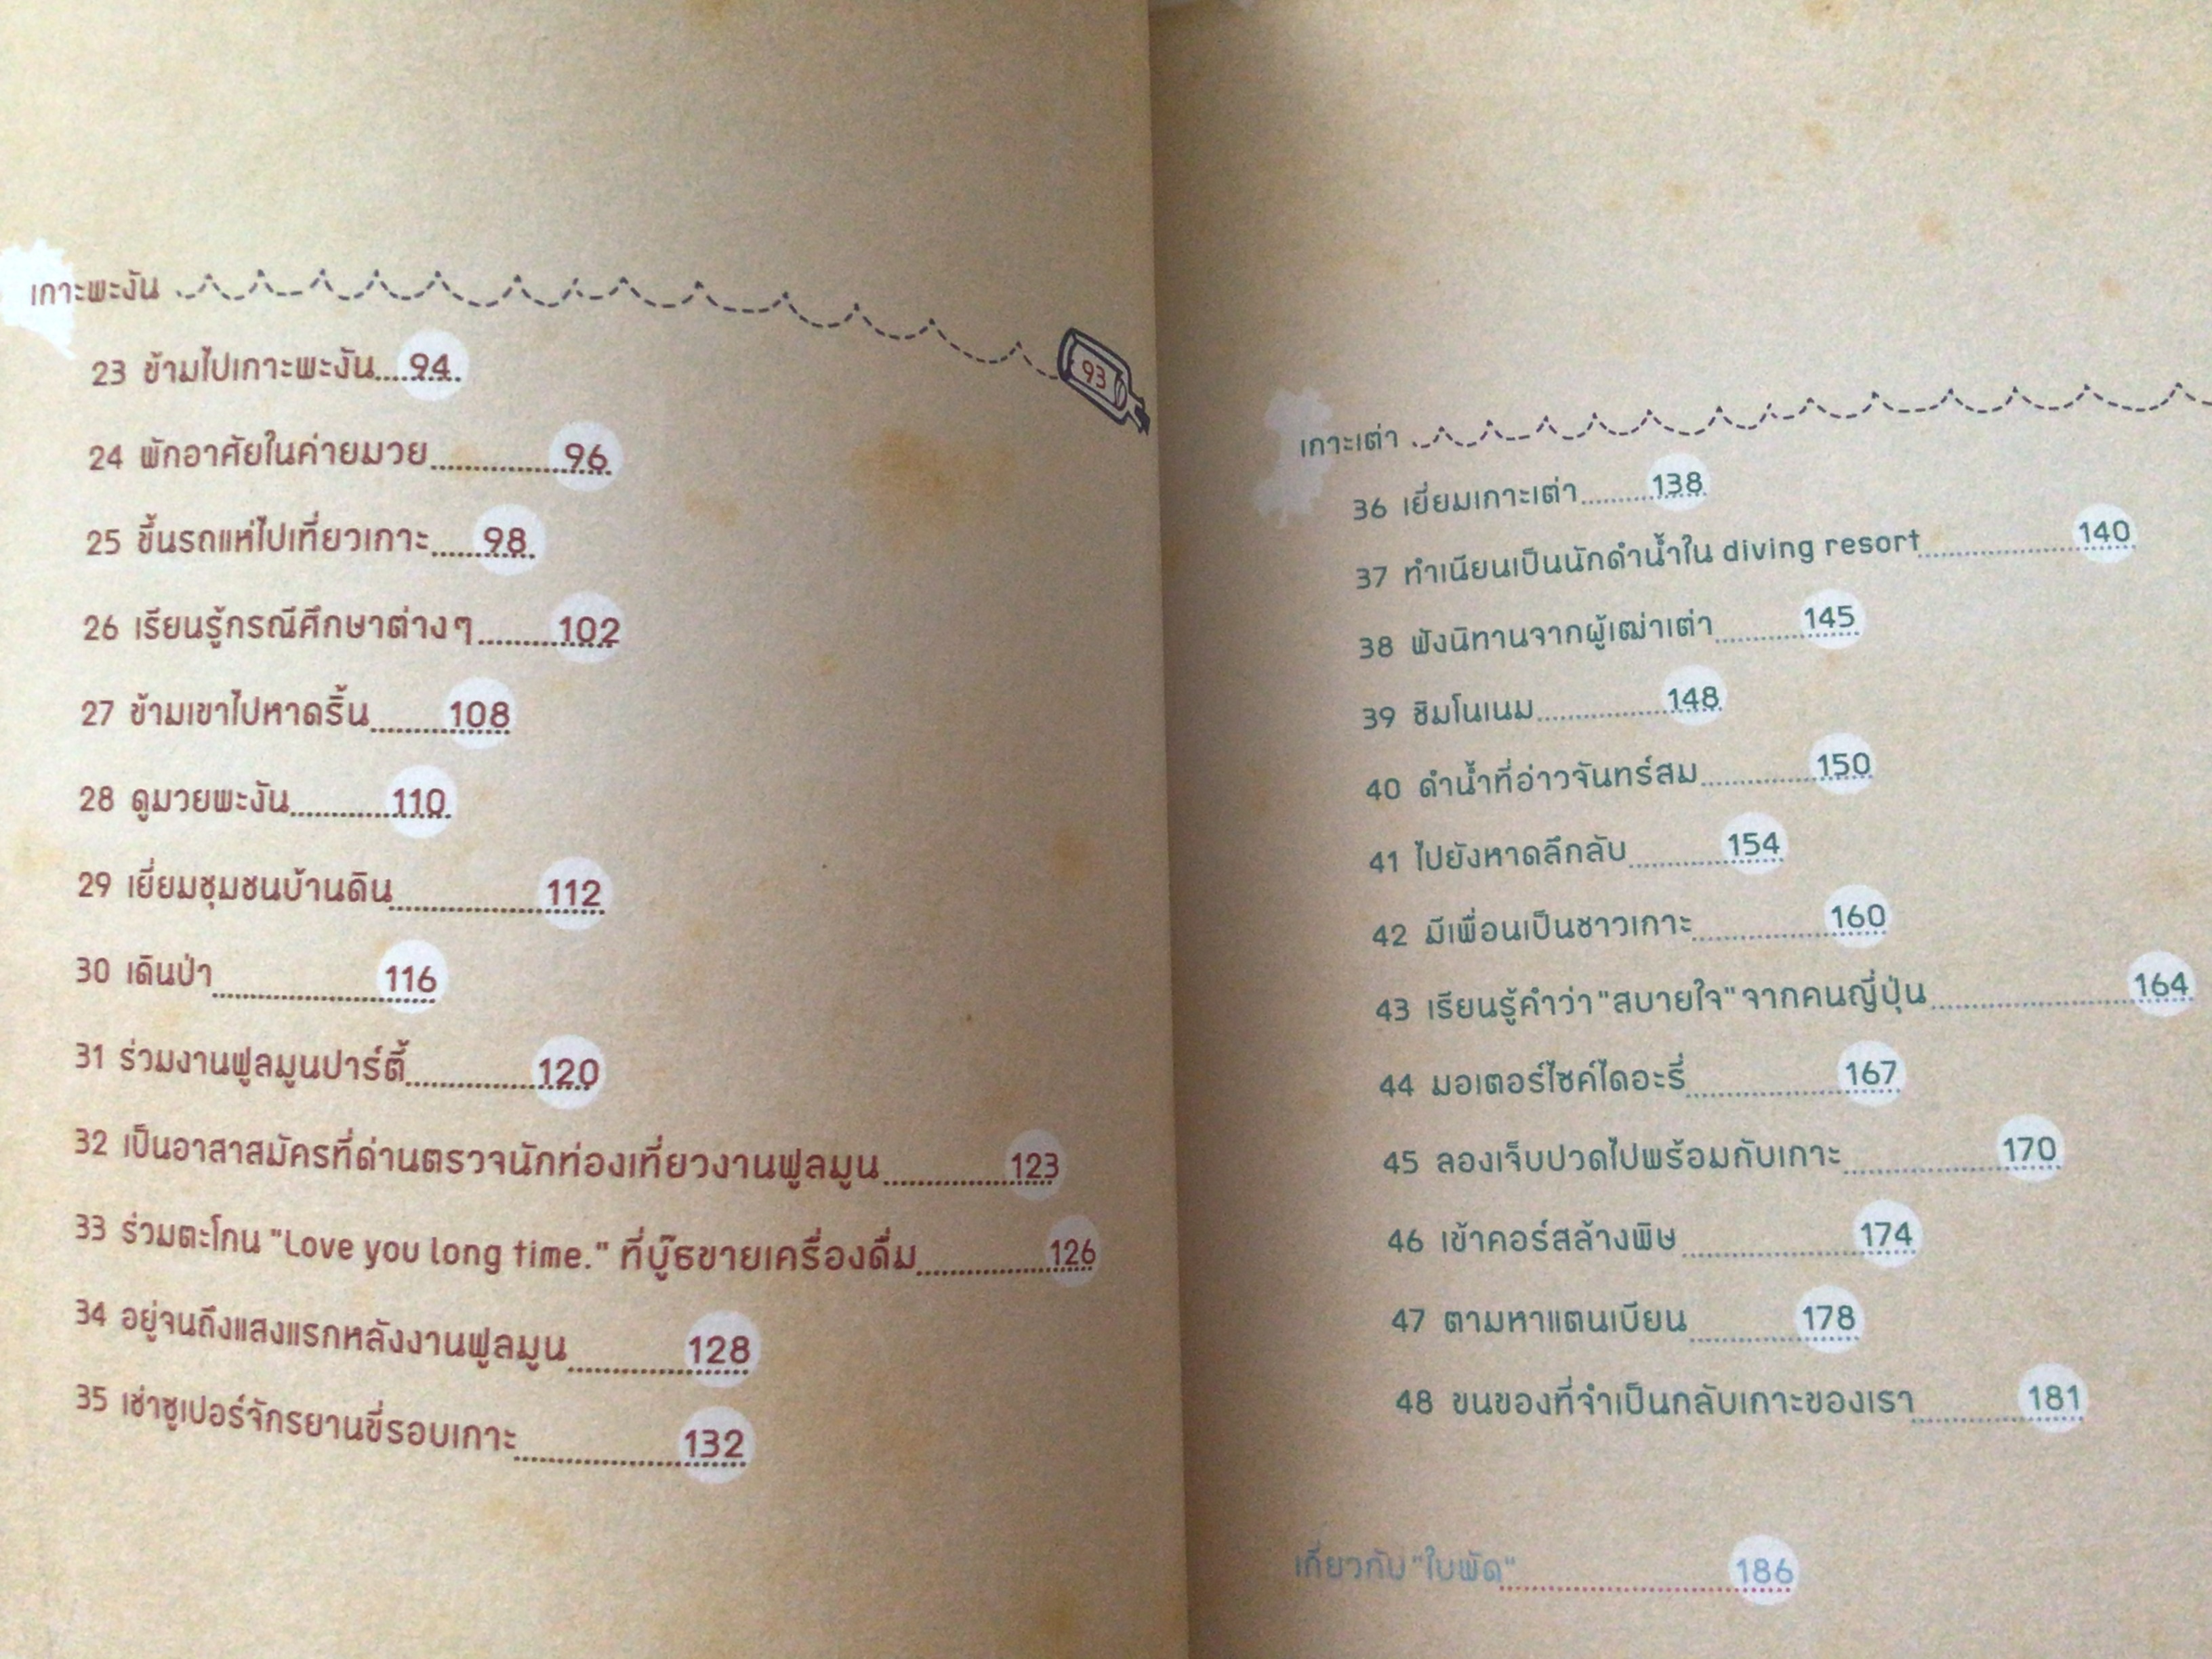 เกาะพะงัน
93
23 ข้ามไปเกาะพะงัน....94
24 พักอาศัยในค่ายมวย..........96
25 ขึ้นรถแห่ไปเที่ยวเกาะ.....98
26 เรียนรู้กรณีศึกษาต่างๆ........102
27 ข้ามเขาไปหาดริ้น.......108
28 ดูมวยพะงัน..........110
29 เยี่ยมชุมชนบ้านดิน..........112
30 เดินป่า..........116
31 ร่วมงานฟูลมูนปาร์ตี้..........120
32 เป็นอาสาสมัครที่ด่านตรวจนักท่องเที่ยวงานฟูลมูน..........123
33 ร่วมตะโกน "Love you long time." ที่บู๊ธขายเครื่องดื่ม..........126
34 อยู่จนถึงแสงแรกหลังงานฟูลมูน..........128
35 เช่าซูเปอร์จักรยานขี่รอบเกาะ..........132
เกาะเต่า
36 เยี่ยมเกาะเต่า.......138
37 ทำเนียนเป็นนักดำน้ำใน diving resort..........140
38 ฟังนิทานจากผู้เฒ่าเต่า.......145
39 ชิมโนเนม..........148
40 ดำน้ำที่อ่าวจันทร์สม..........150
41 ไปยังหาดลึกลับ..........154
42 มีเพื่อนเป็นชาวเกาะ..........160
43 เรียนรู้คำว่า "สบายใจ" จากคนญี่ปุ่น..........164
44 มอเตอร์ไซค์ไดอะรี่..........167
45 ลองเจ็บปวดไปพร้อมกับเกาะ..........170
46 เข้าคอร์สล้างพิษ..........174
47 ตามหาแตนเบียน..........178
48 ขนของที่จำเป็นกลับเกาะของเรา..........181
เกี่ยวกับ "ใบพัด"..........186